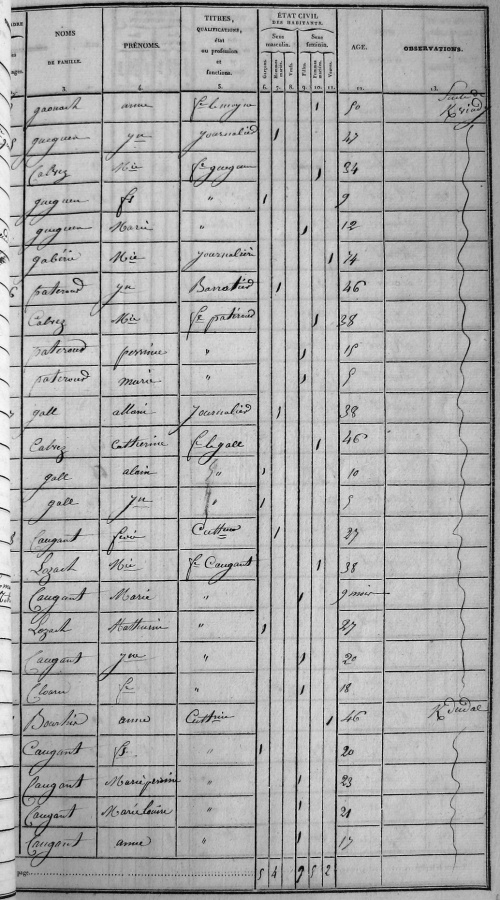 NOMS
DE FAMILLE.
PRÉNOMS.
TITRES,
QUALIFICATIONS,
état
ou profession
et
fonctions.
ÉTAT CIVIL
DES HABITANTS.
Sexe masculin.
Sexe féminin.
Garçons. Hommes mariés. Veufs. Filles. Femmes mariées. Veuves.
AGE.
OBSERVATIONS.
3. 4. 5. 6. 7. 8. 9. 10. 11. 12. 13.
gaonach anne fe lemoyne 1 50
gueguen yn journalier 1 47
Cabrez Mie fe gueguen 1 34
gueguen fs " 1 9
gueguen Marie " 1 12
Mie journalière 1 74
pateroud yn 1 46
Cabrez Mie fe pateroud 1 38
pateroud perrine " 1 15
pateroud marie " 1 5
gall allain journalier 1 38
Cabrez Catherine fe le gall 1 46
gall alain " 1 10
gall yn " 1 5
Caugant Cultr 1 27
Lozach Mie fe Caugant 1 38
Caugant Marie " 1 9 mois
Lozach Mathurin " 1 27
Caugant yne " 1 20
Cloarec fe " 1 18
Bourhis anne Cultrice 1 46
Caugant fs " 1 20
Caugant Marie perrine " 1 23
Caugant Marie louise " 1 21
Caugant anne " 1 17
page 5 4 9 5 2